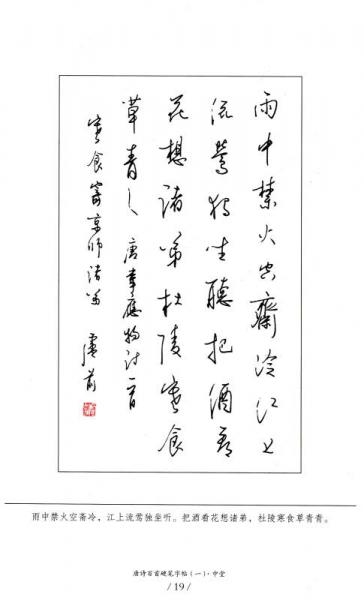 雨中禁火空齋冷江上
流莺独坐聽把酒看
花想诸弟杜陵寒食
草青々 唐韋應物诗一首
寒食寄京师诸弟 盧前
雨中禁火空斋冷，江上流莺独坐听。把酒看花想诸弟，杜陵寒食草青青。
唐诗百首硬笔字帖（一）·中堂
/ 19 /